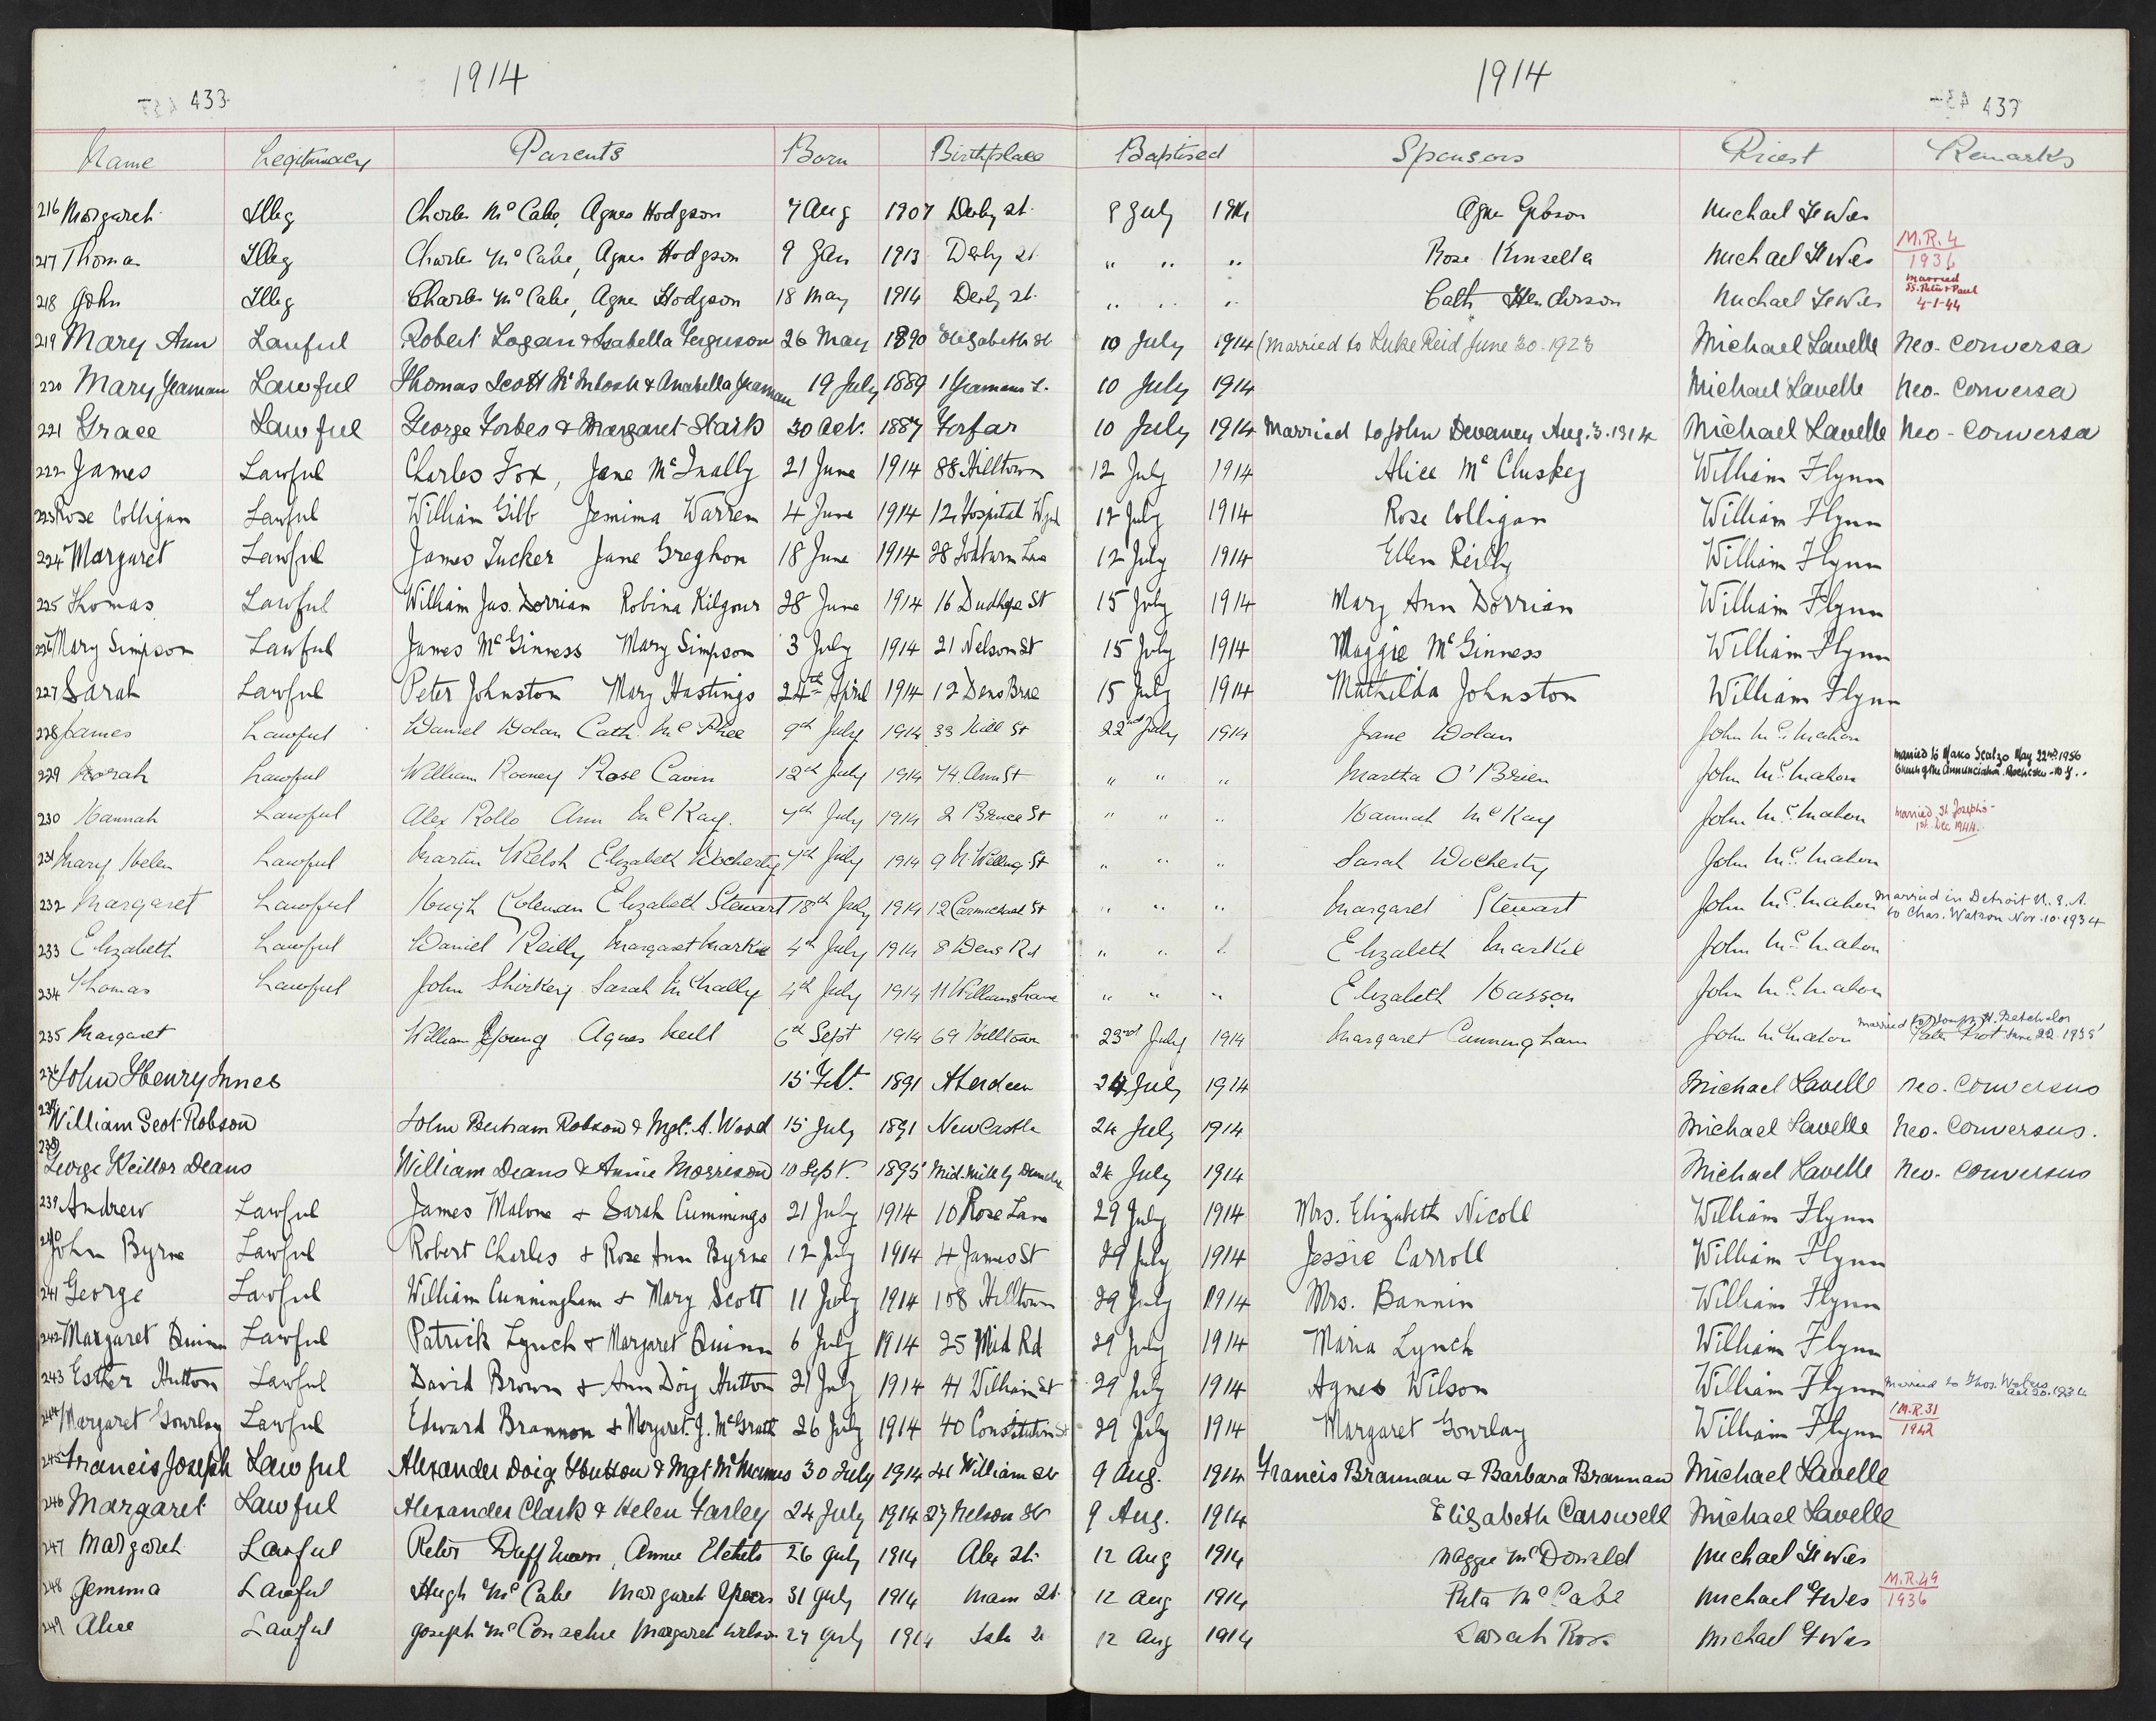 1914
433
1914
437
Name Legitimacy Parents Born Birthplace Baptised Sponsors Priest Remarks
216 Margaret Illeg Charles McCabe, Agnes Hodgson 7 Aug 1907 Derby st. 8 July 1914 Agnes Gibson Michael
217 Thomas Illeg Charles McCabe, Agnes Hodgson 9 Jan 1913 Derby st. " " " Rose Kinsella Michael M.R. 4 1936
218 John Illeg Charles McCabe, Agnes Hodgson 18 May 1914 Derby st. " " " Cath Henderson Michael married SS. Peter & Paul 4-1-44
219 Mary Ann Lawful Robert Logan & Isabella Ferguson 26 May 1890 Elizabeth St 10 July 1914 (Married to Luke Reid June 30. 1923 Michael Lavelle Neo-Conversa
220 Mary Yeaman Lawful Thomas Scott McIntosh & Anabella Yeaman 19 July 1889 1 Yeamans L. 10 July 1914 Michael Lavelle Neo-Conversa
221 Grace Lawful George Forbes & Margaret Stark 30 Oct. 1887 Forfar 10 July 1914 Married to John Devaney Aug. 3. 1914 Michael Lavelle Neo-Conversa
222 James Lawful Charles Fox, Jane McInally 21 June 1914 88 Hilltown 12 July 1914 Alice McCluskey William Flynn
223 Rose Colligan Lawful William Gibb Jemima Warren 4 June 1914 12 Hospital Wynd 12 July 1914 Rose Colligan William Flynn
224 Margaret Lawful James Tucker Jane Greghon 18 June 1914 28 12 July 1914 Ellen Reilly William Flynn
225 Thomas Lawful William Jas. Dorrian Robina Kilgour 28 June 1914 16 Dudhope St 15 July 1914 Mary Ann Dorrian William Flynn
226 Mary Simpson Lawful James McGinness Mary Simpson 3 July 1914 21 Nelson St 15 July 1914 Maggie McGinness William Flynn
227 Sarah Lawful Peter Johnston Mary Hastings 24th April 1914 12 Dens Brae 15 July 1914 Mathilda Johnston William Flynn
228 James Lawful Daniel Dolan Cath. McPhee 9th July 1914 33 Hill St 22nd July 1914 Jane Dolan John McMahon
229 Norah Lawful William Rooney Rose Cavin 12th July 1914 74 Ann St " " " Martha O'Brien John McMahon married to Marco Scalzo May 22nd 1956 Church of the Annunciation. Rochester - N.Y..
230 Hannah Lawful Alex Rollo Ann McKay. 7th July 1914 2 Bruce St " " " Hannah McKay John McMahon Married St Joseph's - 1st Dec 1944.
231 Mary Helen Lawful Martin Welsh Elizabeth Docherty 7th July 1914 9 N. Welling. St " " " Sarah Docherty John McMahon
232 Margaret Lawful Hugh Coleman Elizabeth Stewart 18th July 1914 12 Carmichael St " " " Margaret Stewart John McMahon Married in Detroit U.S.A. to Chas. Watson Nov. 10. 1934
233 Elizabeth Lawful Daniel Reilly Margaret Markie 4th July 1914 8 Dens Rd " " " Elizabeth Markie John McMahon
234 Thomas Lawful John Shirkey Sarah McNally 4th July 1914 11 Williams Lane " " " Elizabeth Hasson John McMahon
235 Margaret William Young Agnes Neill 6th Sept 1914 69 Hilltown 23rd July 1914 Margaret Cunningham John McMahon married to June 22. 1935
236 John Henry Innes 15 Feb. 1891 Aberdeen 24 July 1914 Michael Lavelle Neo-Conversus
237 William Scot Robson John Bertram Robson & Mgt. A. Wood 15 July 1891 New Castle 24 July 1914 Michael Lavelle Neo-Conversus.
238 George Keillor Deans William Deans & Annie Morrison 10 Sept. 1895 24 July 1914 Michael Lavelle Neo-Conversus
239 Andrew Lawful James Malone & Sarah Cummings 21 July 1914 10 Rose Lane 29 July 1914 Mrs. Elizabeth Nicoll William Flynn
240 John Byrne Lawful Robert Charles & Rose Ann Byrne 12 July 1914 4 James St 29 July 1914 Jessie Carroll William Flynn
241 George Lawful William Cunningham & Mary Scott 11 July 1914 108 Hilltown 29 July 1914 Mrs. Bannin William Flynn
242 Margaret Quinn Lawful Patrick Lynch & Margaret Quinn 6 July 1914 25 Mid Rd 29 July 1914 Maria Lynch William Flynn
243 Esther Hutton Lawful David Brown & Ann Doig Hutton 21 July 1914 41 William St 29 July 1914 Agnes Wilson William Flynn married to Thos.
244 Margaret Gourlay Lawful Edward Brannon & Margaret J. McGrath 26 July 1914 40 Constitution St 29 July 1914 Margaret Gourlay William Flynn M.R. 31 1942
245 Francis Joseph Lawful Alexander Doig Hutton & Mgt McManus 30 July 1914 41 William St 9 Aug. 1914 Francis Brannan & Barbara Brannan Michael Lavelle
246 Margaret Lawful Alexander Clark & Helen Farley 24 July 1914 27 Nelson St 9 Aug. 1914 Elizabeth Carswell Michael Lavelle
247 Margaret Lawful Peter Annie 26 July 1914 Alex St. 12 Aug 1914 Maggie McDonald Michael
248 Jemima Lawful Hugh McCabe Margaret Speers 31 July 1914 Main St. 12 Aug 1914 McCabe Michael M.R. 49 1936
249 Alice Lawful Joseph McConachie Margaret Wilson 27 July 1914 12 Aug 1914 Sarah Ross Michael